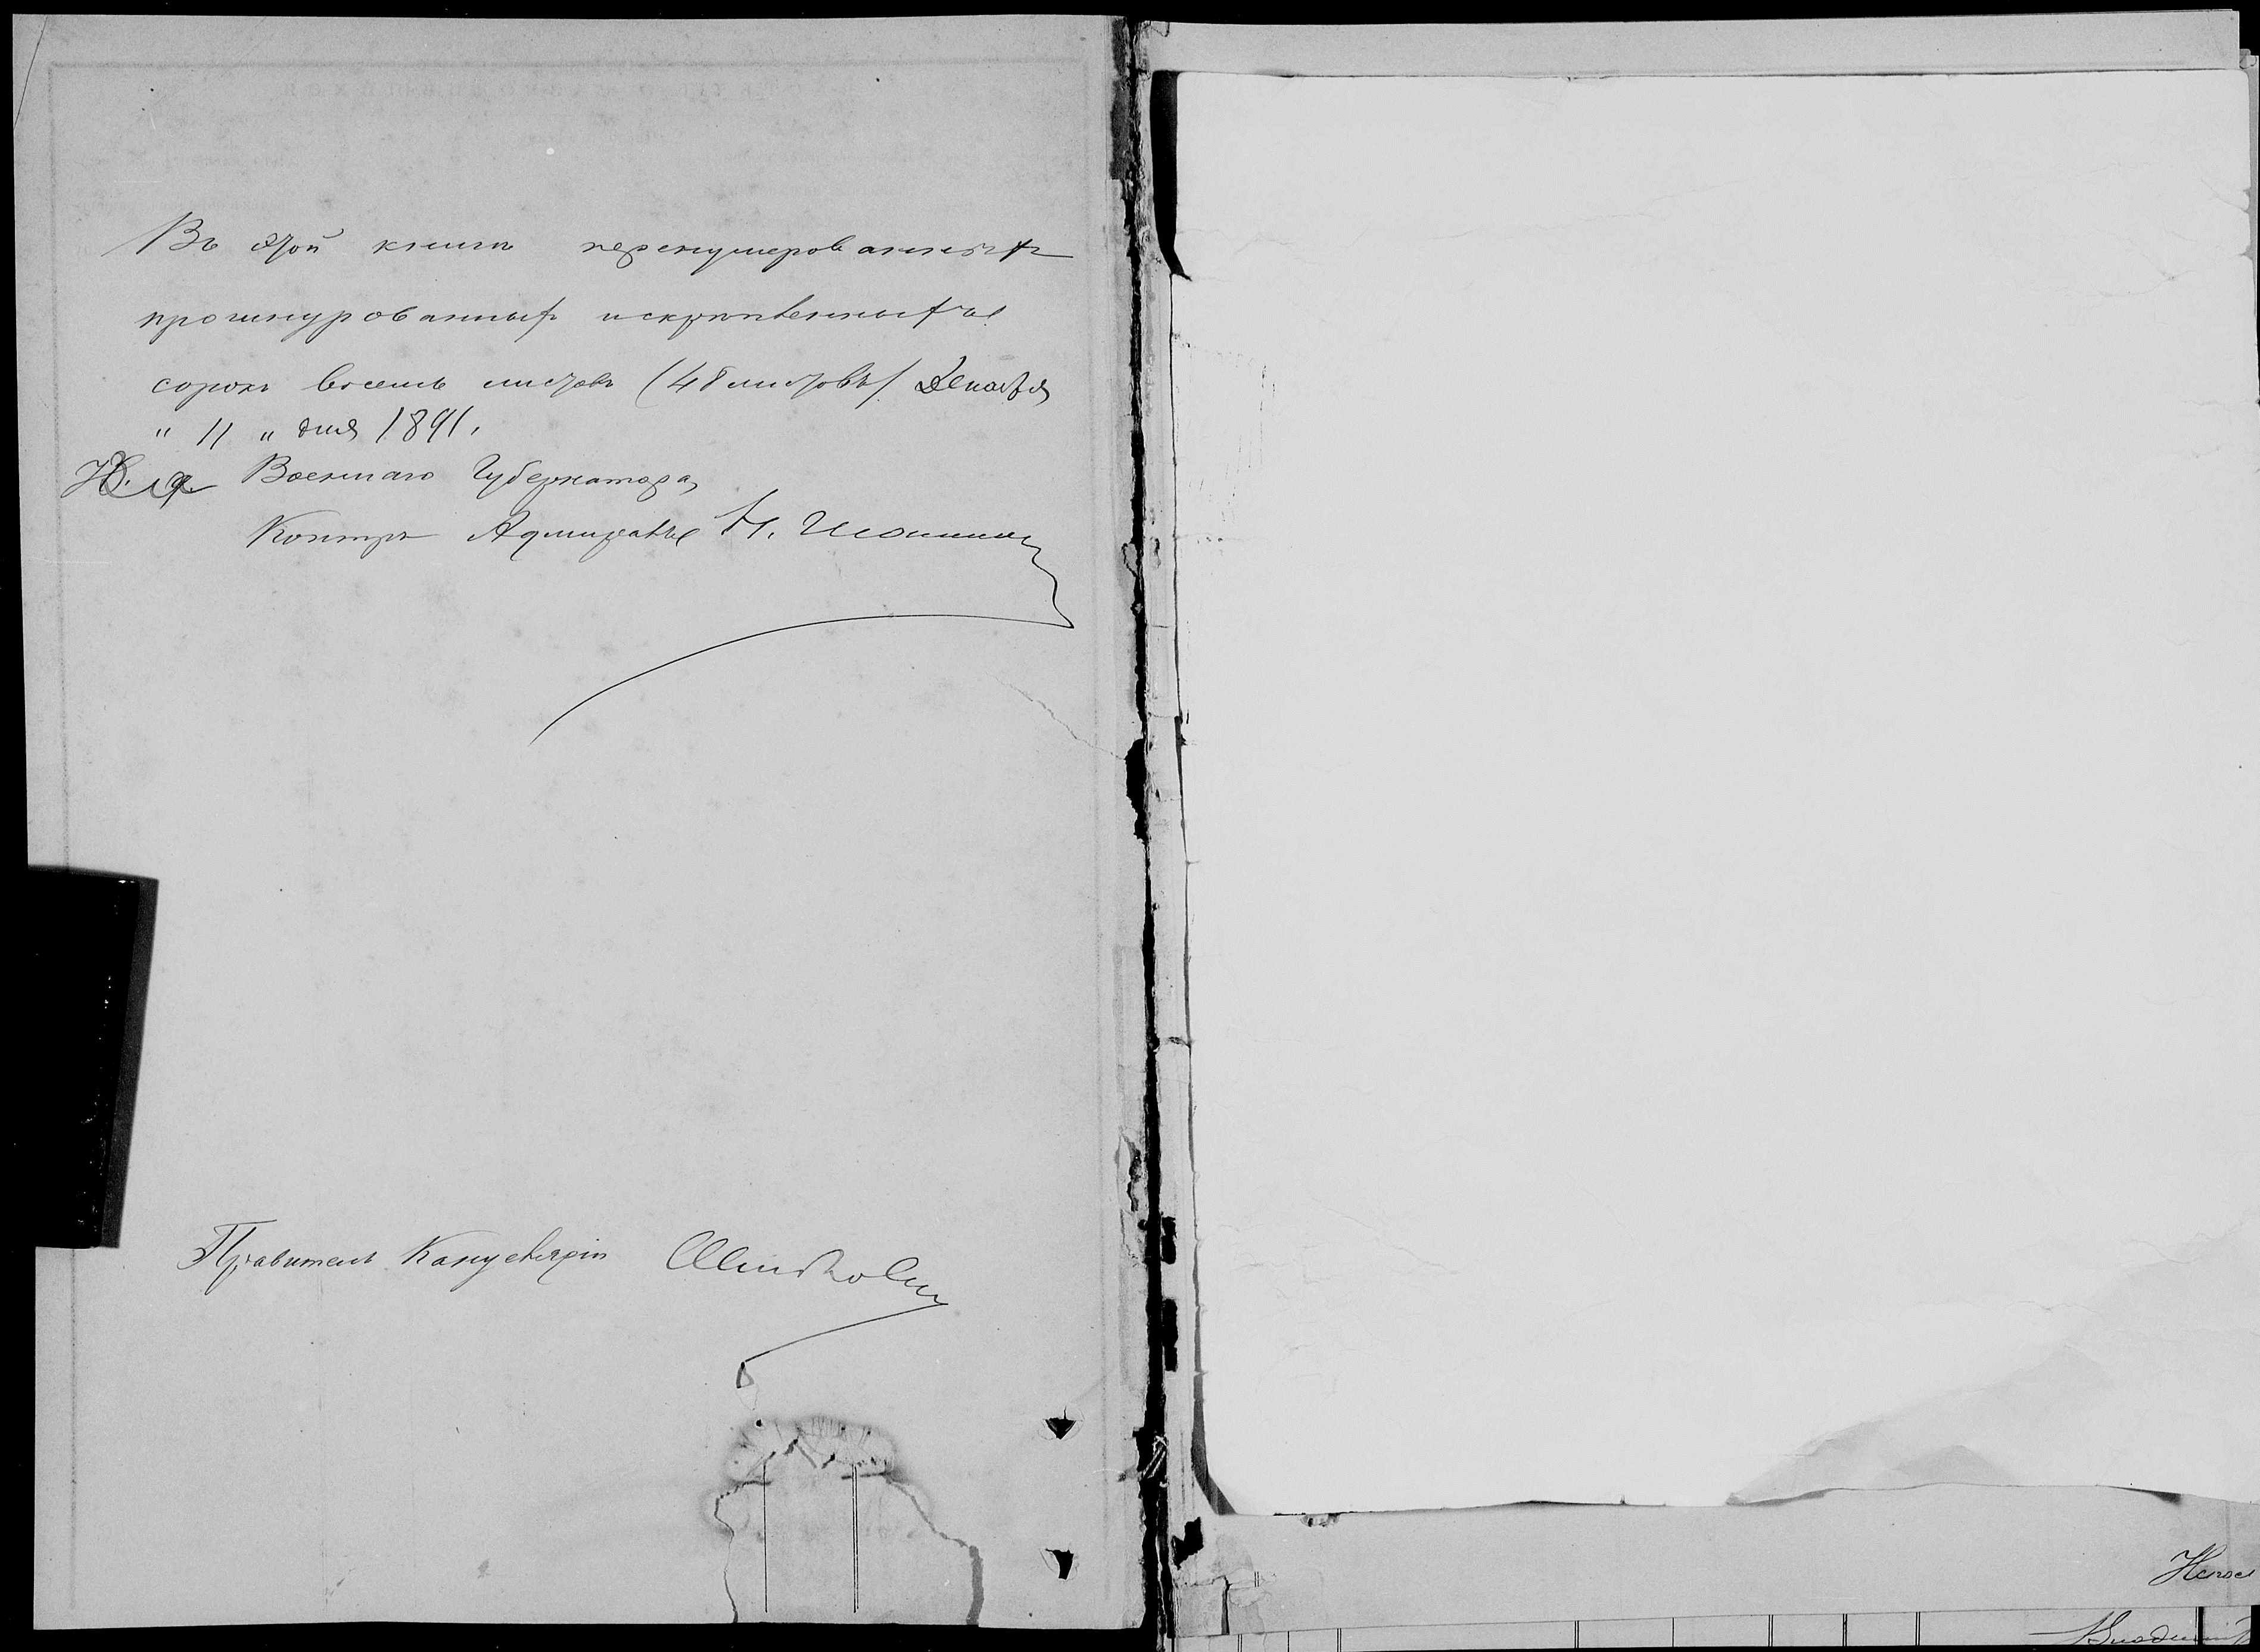 Въ этой книгѣ перенумерованныхъ
прошнурованныхъ и скрѣпленныхъ
сорокъ восемь листовъ (48 листовъ) Декабря
" 11 " дня 1891.
Военнаго Губернатора,
Контръ Адмиралъ Н.
Правитель Канцеляріи